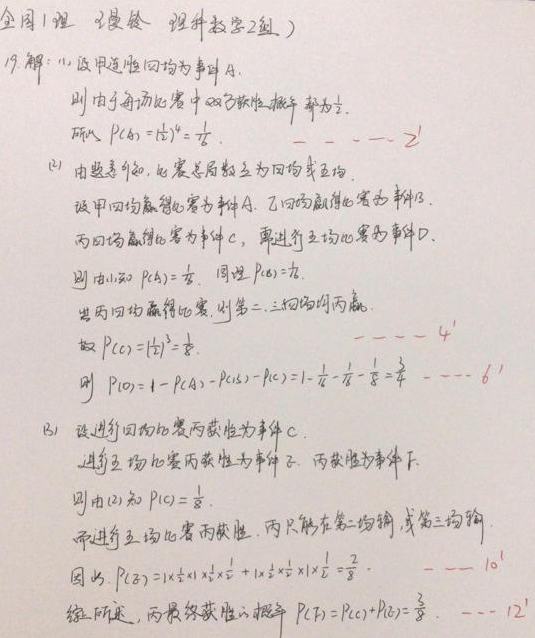 全国1理 理科数学2组)
19.解:(1) 设甲连胜四场为事件A.
则由于每场比赛中双方获胜概率都为1/2.
所以 P(A)=(1/2)^4=1/16. - - - - - 2'
(2) 由题意可知,比赛总局数应为四场或五场.
设甲四场赢得比赛为事件A. 乙四场赢得比赛为事件B.
丙四场赢得比赛为事件C, 需进行五场比赛为事件D.
则由(1)知 P(A)=1/16. 同理P(B)=1/16.
当丙四场赢得比赛.则第二.三.四场均丙赢.
故 P(C)=(1/2)^3=1/8. - - - - 4'
则 P(D)=1-P(A)-P(B)-P(C)=1-1/16-1/16-1/8=3/4 - - - - 6'
(3) 设进行四场比赛丙获胜为事件C.
进行五场比赛丙获胜为事件E. 丙获胜为事件F.
则由(2)知 P(C)=1/8.
而进行五场比赛丙获胜.丙只能在第二场输,或第三场输
因此. - - - 10'
综上所述,丙最终获胜的概率 P(F)=P(C)+P(E)= - - - 12'